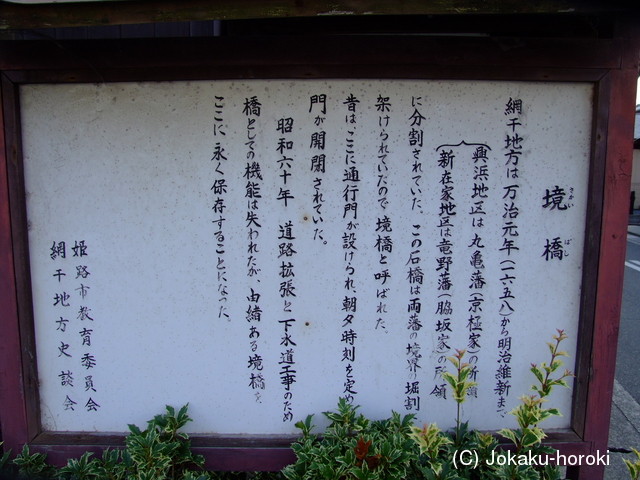 境橋
さかい
ばし
網干地方は万治元年(一六五八)から明治維新まで、
興浜地区は丸亀藩(京極家)の所領
新在家地区は竜野藩(脇坂家)の所領
に分割されていた。この石橋は両藩の境界の堀割
架けられていたので境橋と呼ばれた。
昔は、ここに通行門が設けられ、朝夕時刻を定め
門が開閉されていた。
昭和六十年 道路拡張と下水道工事のため
橋としての機能は失われたが、由緒ある境橋を
ここに永く保存することになった。
姫路市教育委員会
網干地方史談会
(C) Jokaku-horoki